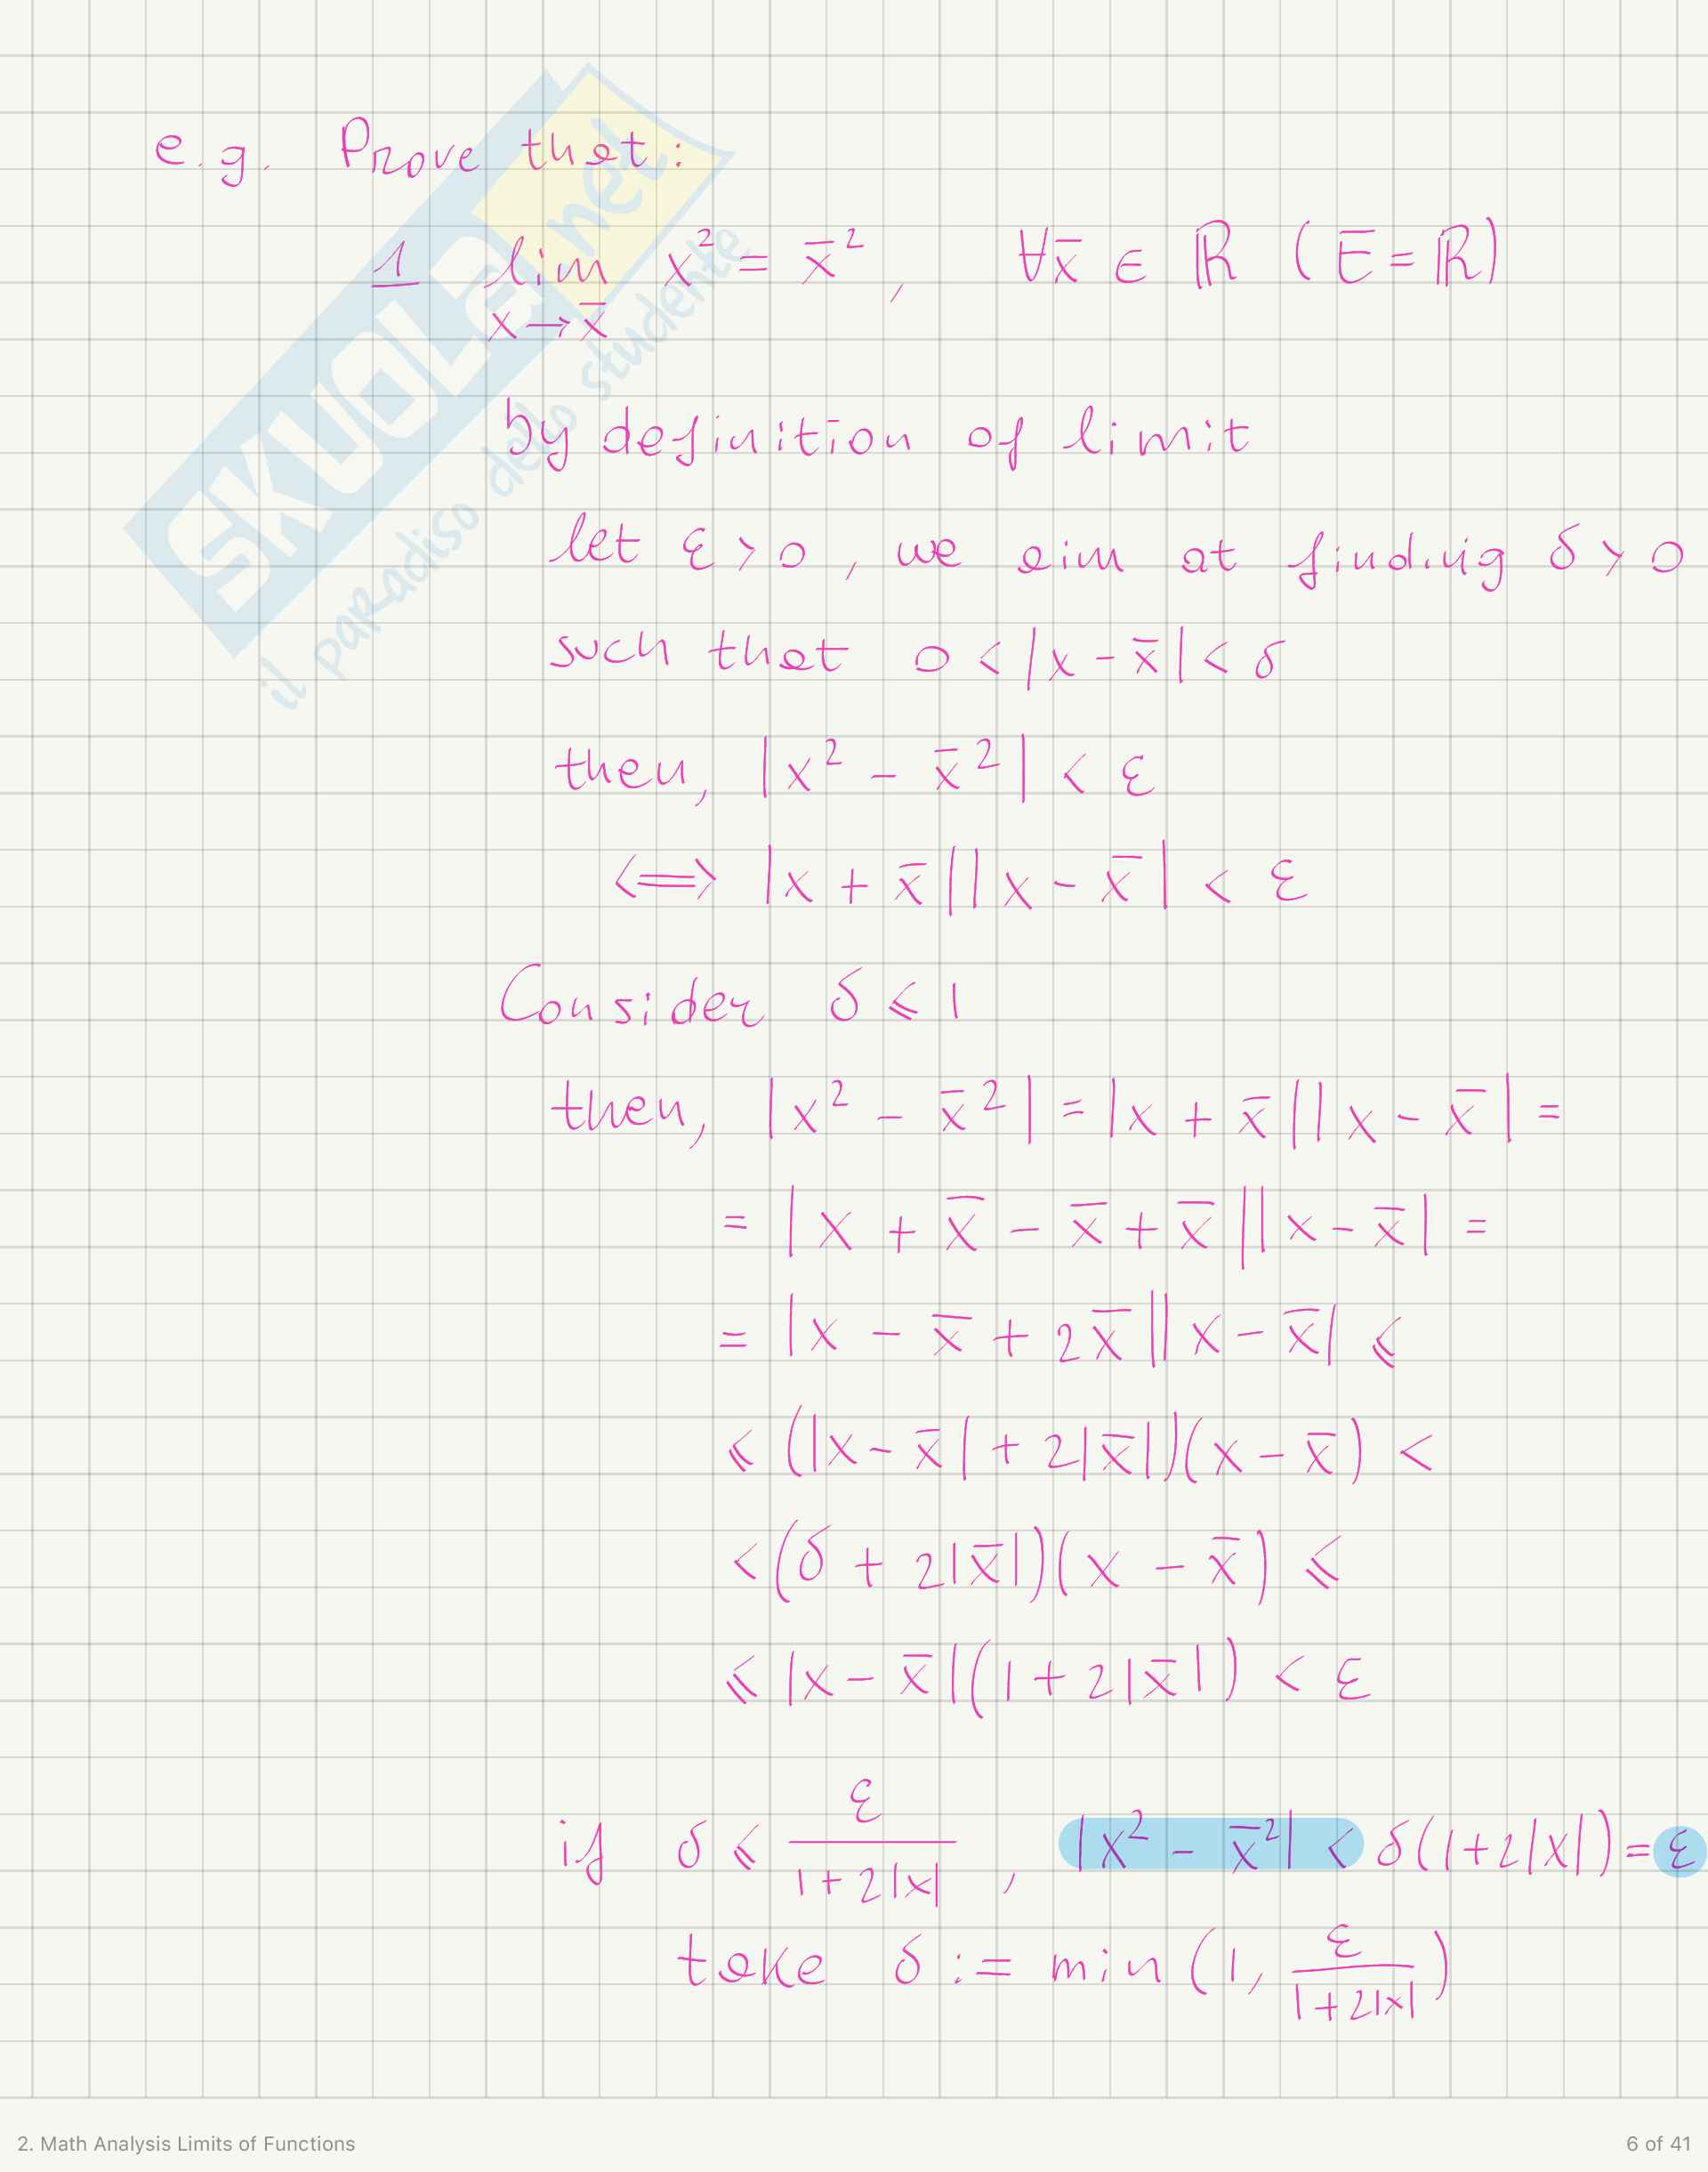 e.g. Prove that:
1 lim x² = x̄², ∀x̄ ∈ ℝ (E = ℝ)
x → x̄
by definition of limit
let ε > 0, we aim at finding δ > 0
such that 0 < |x - x̄| < δ
then, |x² - x̄²| < ε
⟺ |x + x̄||x - x̄| < ε
Consider δ ⩽ 1
then, |x² - x̄²| = |x + x̄||x - x̄| =
= |x + x̄ - x̄ + x̄||x - x̄| =
= |x - x̄ + 2x̄||x - x̄| ⩽
⩽ (|x - x̄| + 2|x̄|)(x - x̄) <
< (δ + 2|x̄|)(x - x̄) ⩽
⩽ |x - x̄|(1 + 2|x̄|) < ε
if δ ⩽ ε / (1 + 2|x|), |x² - x̄²| < δ(1 + 2|x|) = ε
take δ := min(1, ε / (1 + 2|x|))
SKUOLA.net
il paradiso dello studente
2. Math Analysis Limits of Functions
6 of 41